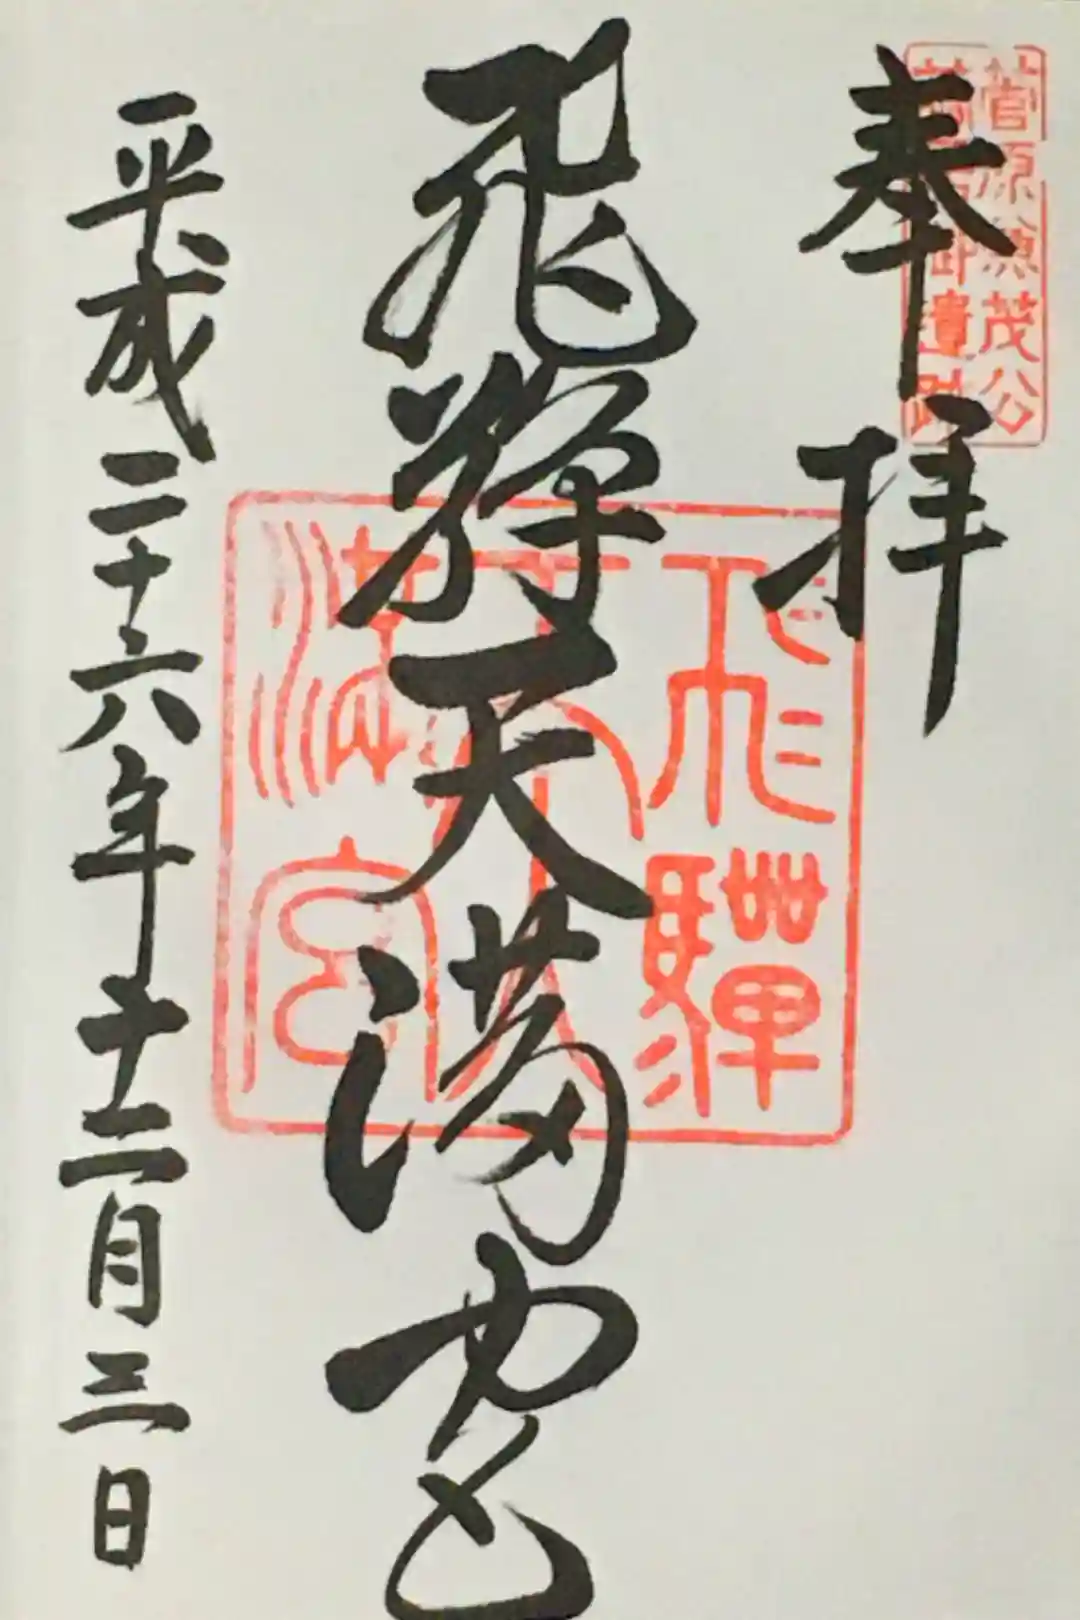 奉拝
菅原兼茂公
御遺跡
飛騨天満宮
飛驒
天満宮
平成二十六年十二月三日